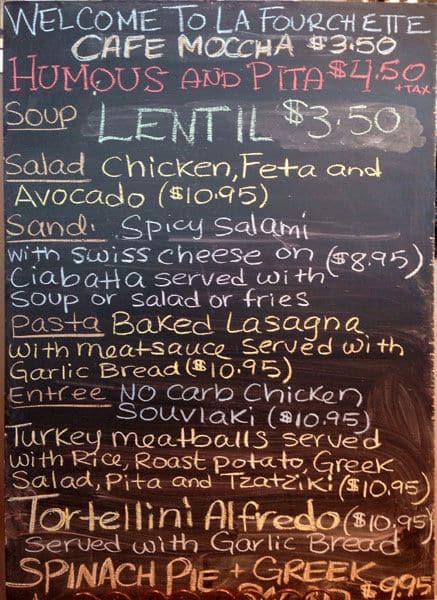 WELCOME TO LA FOURCHETTE
CAFE MOCCHA $3.50
HUMOUS AND PITA $4.50
+TAX
Soup LENTIL $3.50
Salad Chicken, Feta and
Avocado ($10.95)
Sand. Spicy Salami
with swiss cheese on ($8.95)
Ciabatta served with
Soup or salad or fries
Pasta Baked Lasagna
with meatsauce served with
Garlic Bread ($10.95)
Entree No Carb Chicken
Souvlaki ($10.95)
Turkey meatballs served
with Rice, Roast potato, Greek
Salad, Pita and Tzatziki ($10.95)
Tortellini Alfredo ($10.95)
served with Garlic Bread
SPINACH PIE + GREEK
$9.95